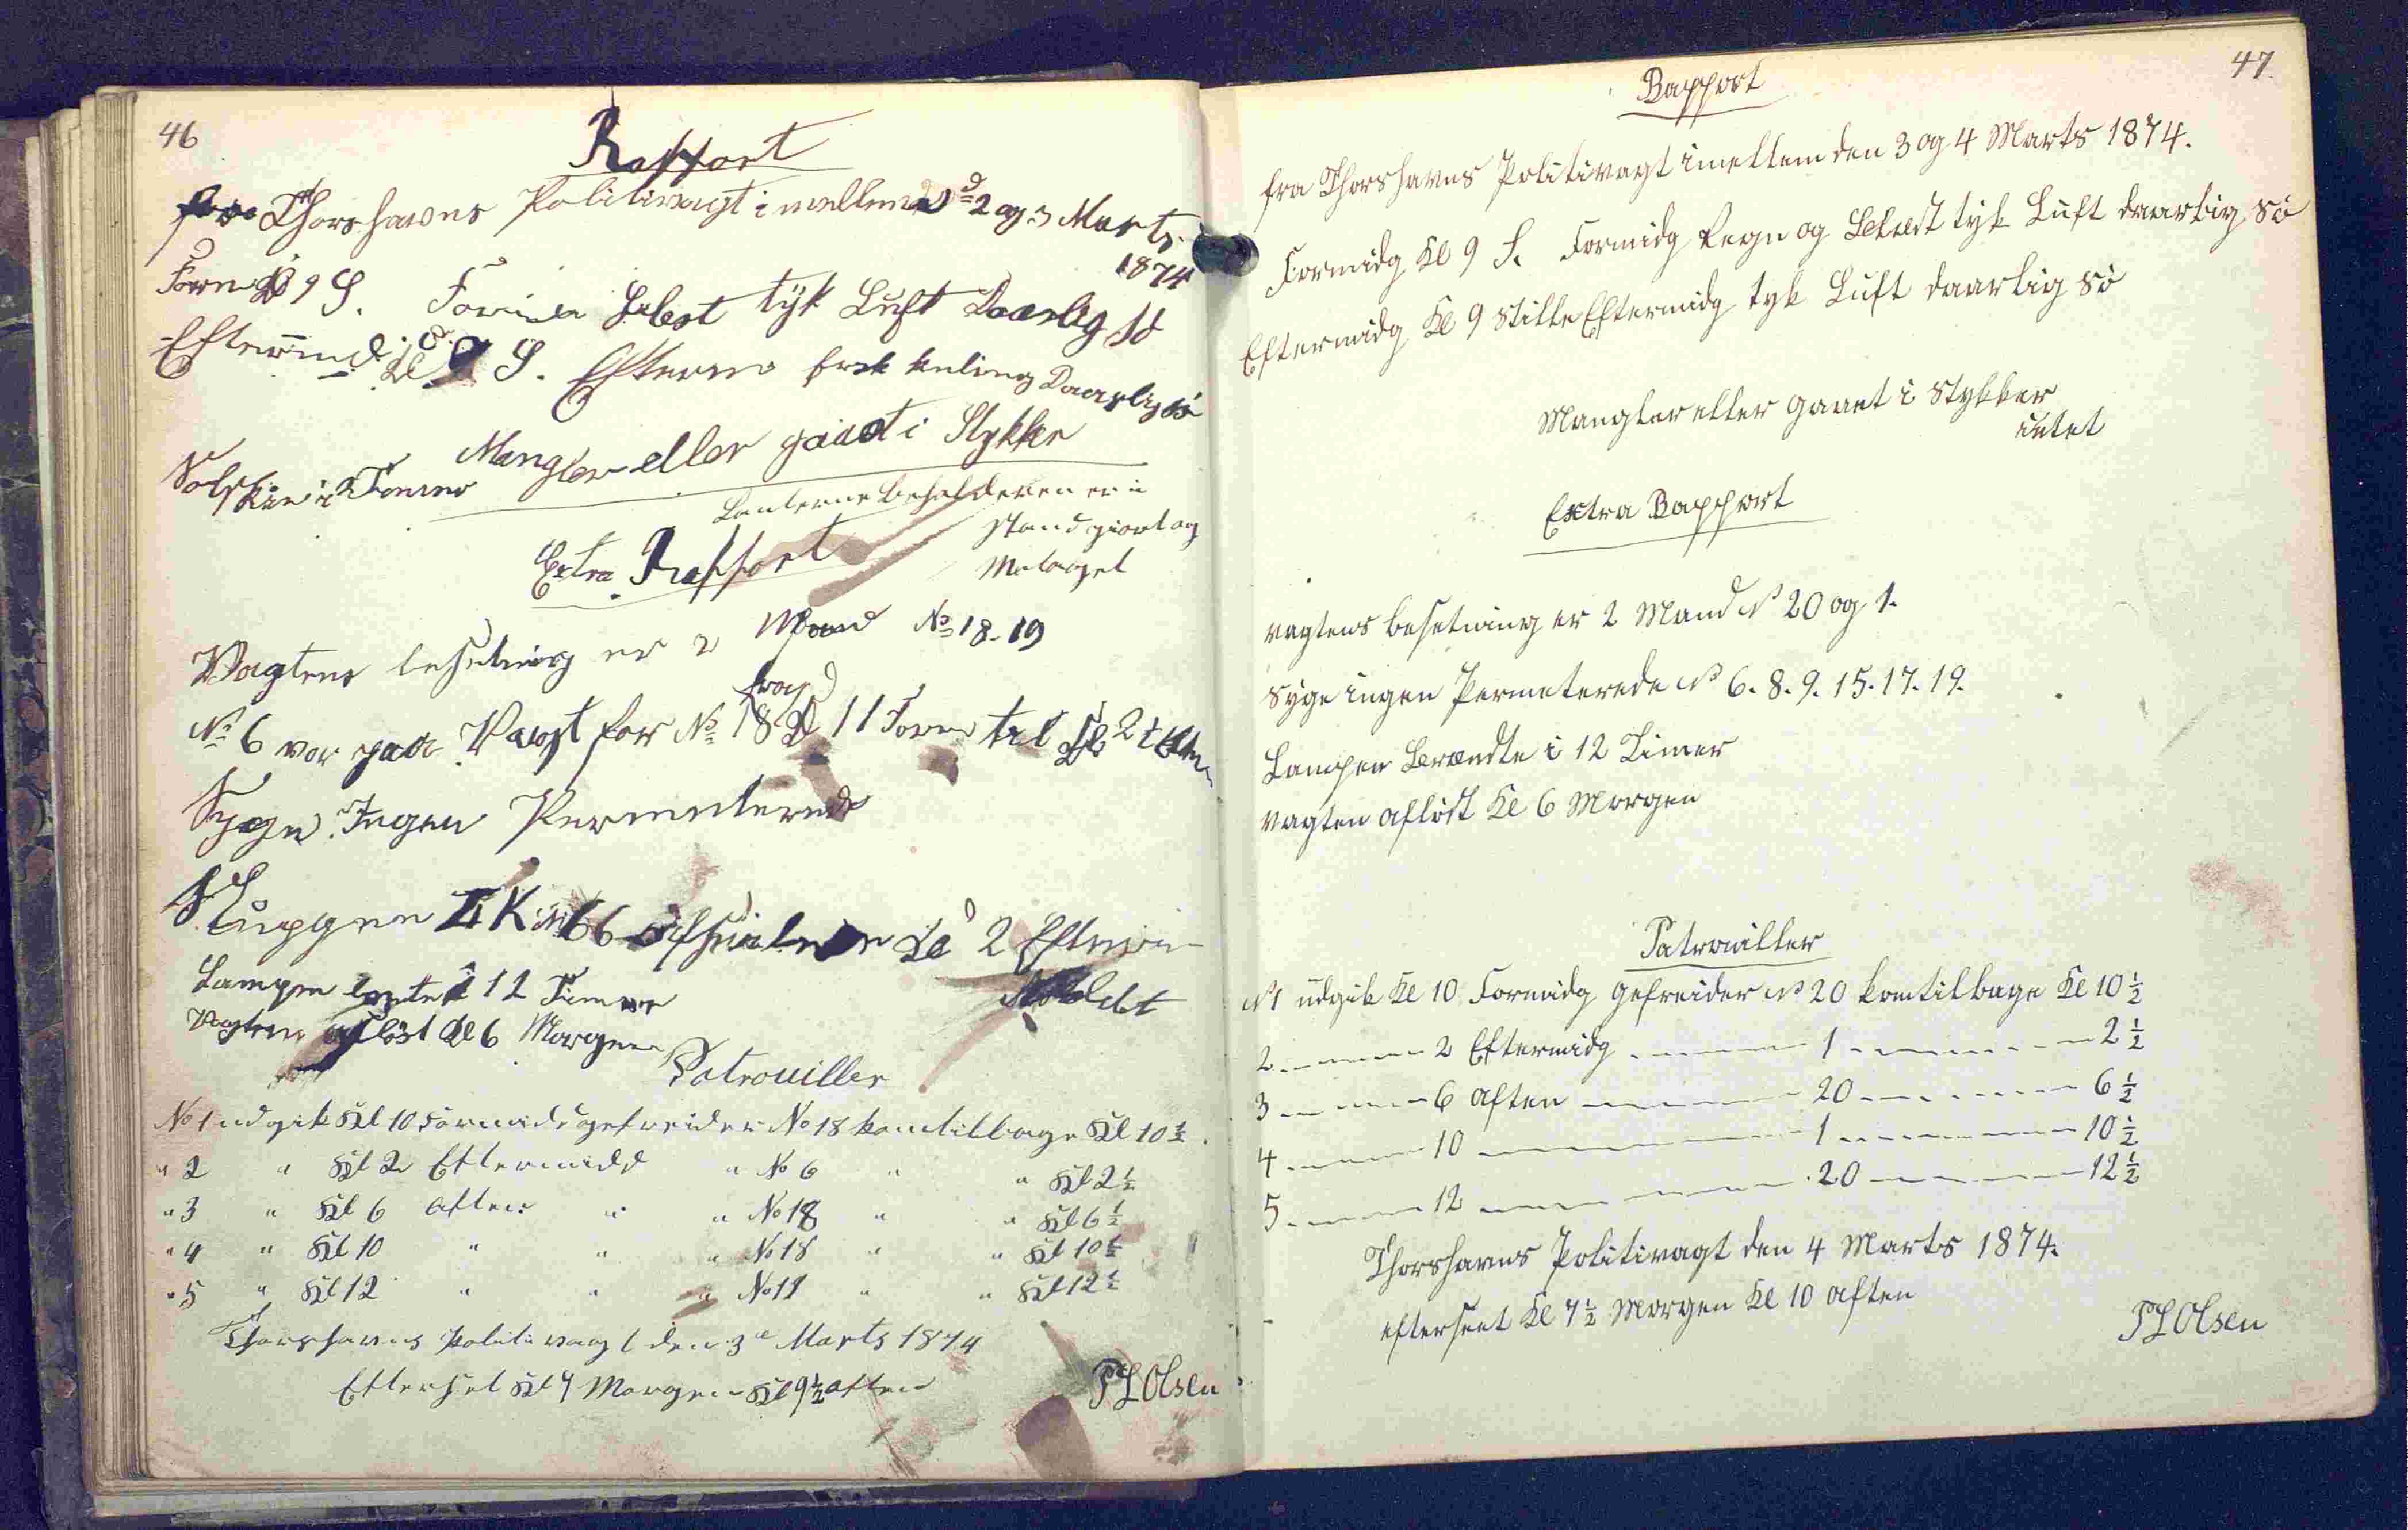 46
Rapport
fra Thorshavns Politivagt imellem d 2 og 3 Marts
1874
Form Kl 9 S. Formd Lebest tÿk Luft Daarlig Sö
Eftermd. Kl 8 S. Efterm frisk kuling Daarlig sö
Solskin i Formd
Mangler eller gaaet i Stykker
Lanterne beholderen er i
stand giort og
Motaget
Extra Rapport
Vagtens besetning er 2 Mand No 18-19
No 6 var paa Vagt for No 18 fra Kl 11 Form til Kl 2 i Efterm
Syge Ingen Permeterede
Sluppen 66 Kl 2 Efterm
Lampen brente i 12 Timer
Vagten aflöst Kl 6 Morgen
Patrouiller
No 1 udgik Kl 10 Formidd gefreider No 18 kom tilbage Kl 10 ½.
" 2 " Kl 2 Eftermidd " No 6 " " Kl 2 ½
" 3 " Kl 6 Aften " " No 18 " " Kl 6 ½
" 4 " Kl 10 " " " No 18 " " Kl 10 ½
" 5 " Kl 12 " " " No 19 " " Kl 12 ½
Thorshavns Politivagt den 3e Marts 1874
Efterset Kl 7 Morgen Kl 9 ½ aften
P L Olsen
47.
Rapport
fra Thorshavns Politivagt imellem den 3 og 4 Marts 1874.
Formidg Kl 9 S. Formidg Regn og Lebest tyk Luft daarlig Sö
Eftermidg Kl 9 Stille Eftermidg tyk Luft daarlig Sö
Mangler eller gaaet i Stykker
intet
Extra Rapport
vagtens besetning er 2 Mand No 20 og 1.
Syge ingen Permeterede No 6. 8. 9. 15. 17. 19.
Lampen Brændte i 12 Timer
vagten aflöst Kl 6 Morgen
Patrouiller
No 1 udgik Kl 10 Formidg gefreider No 20 kom tilbage Kl 10 ½
2 ---- 2 Eftermidg ---- 1 ---- 2 ½
3 ---- 6 aften ---- 20 ---- 6 ½
4 ---- 10 ---- 1 ---- 10 ½
5 ---- 12 ---- 20 ---- 12 ½
Thorshavns Politivagt den 4 Marts 1874.
efterseet Kl 7 ½ Morgen Kl 10 aften
P L Olsen